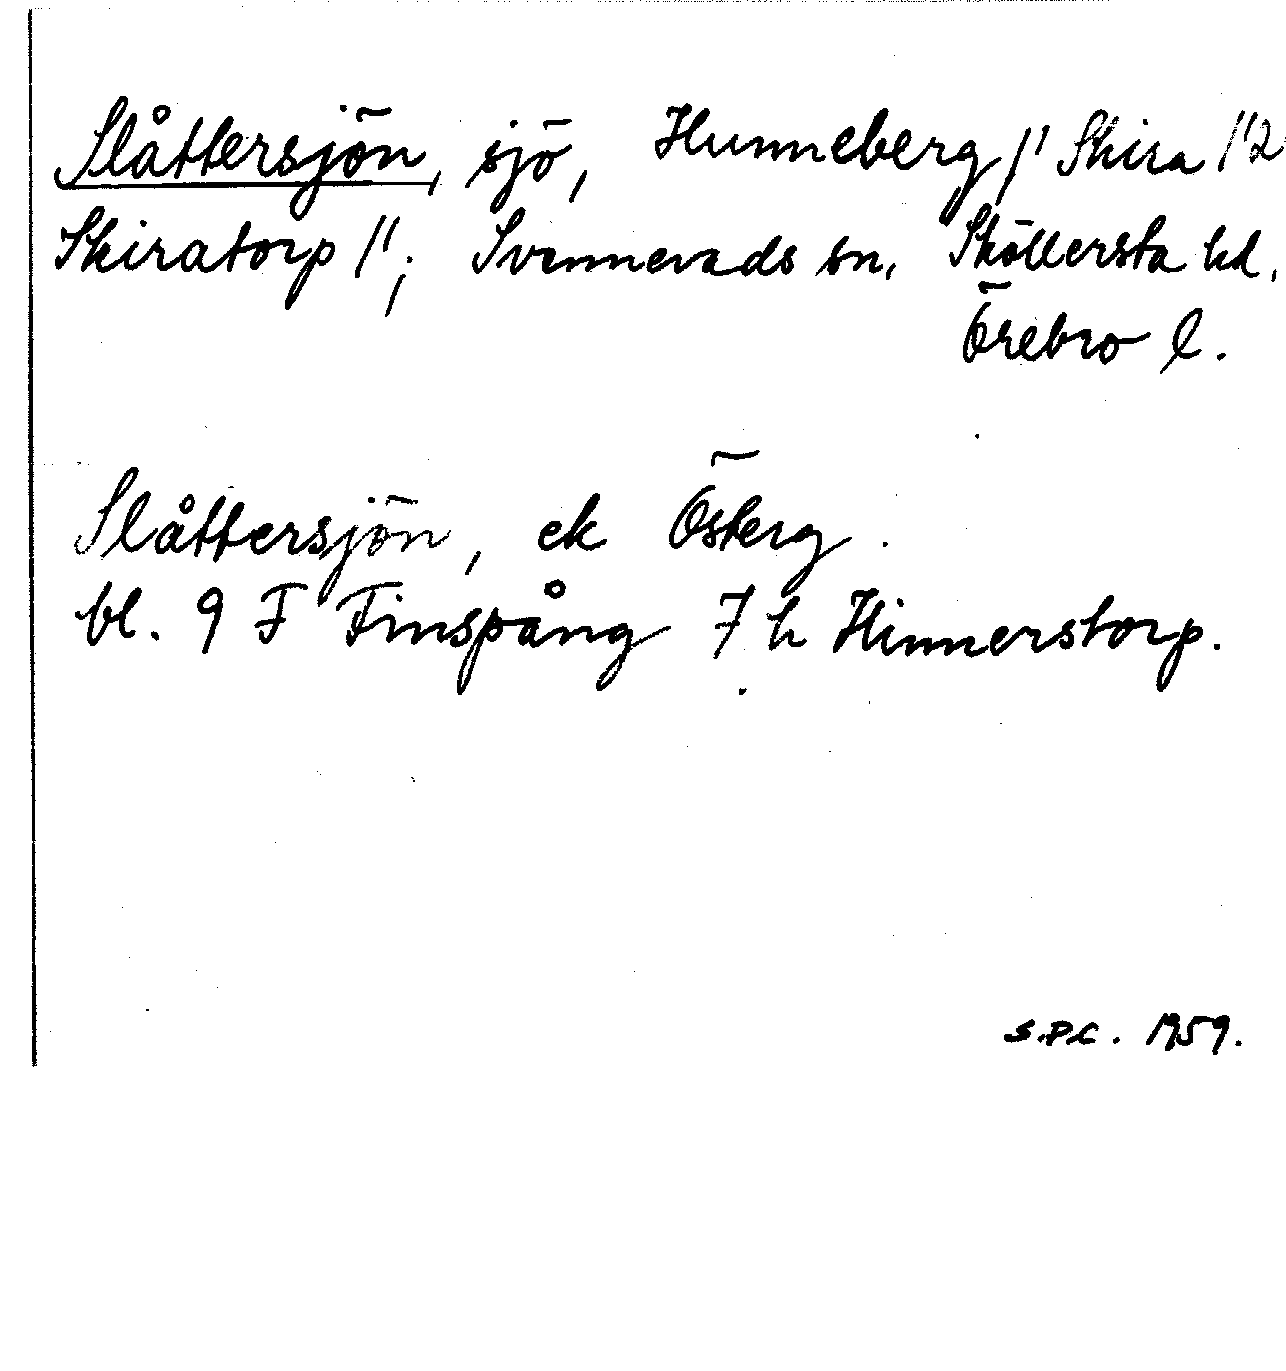 Slåttersjön, sjö, Hunneberg 1/1 Skira 1/2
Skiratorp 1/1; Svennevads sn, Sköllersta hd,
Örebro l.
Slåttersjön, ek Österg.
bl. 9 F Finspång 7 h Hinnerstorp.
S.P.C. 1959.